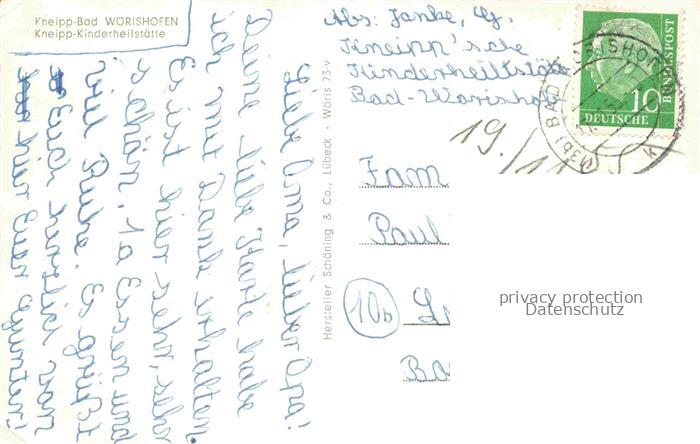 Kneipp-Bad WÖRISHOFEN
Kneipp-Kinderheilstätte
Liebe Oma, lieber Opa!
Deine liebe Karte habe
ich mit Dank erhalten.
Es ist hier sehr, sehr
schön. 1a Essen und
viel Ruhe. Es grüßt
Euch herzlich von
hier Euer Günter!
Hersteller Schöning & Co., Lübeck - Wöris 73-v
Abs: Janke, G.
Kneipp'sche
Kinderheilstätte
Bad-Wörishofen
19./11
DEUTSCHE
BUNDESPOST
10
Fam
Paul
10b
Ba
privacy protection
Datenschutz